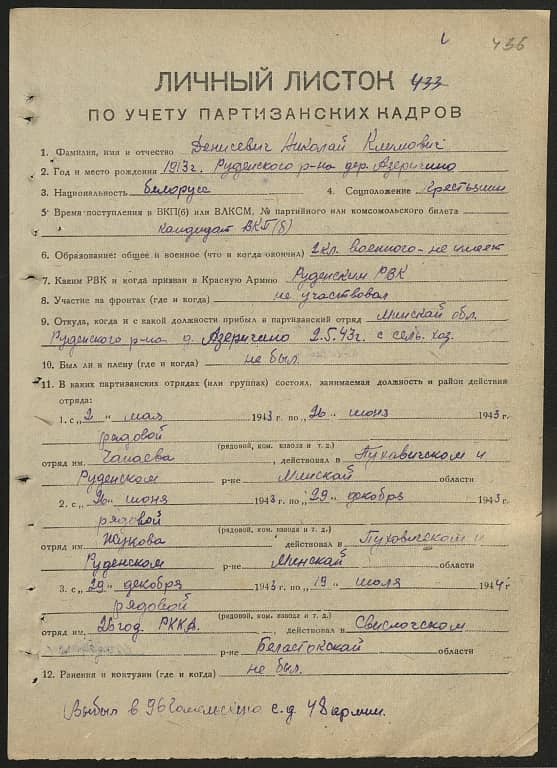 436
ЛИЧНЫЙ ЛИСТОК 433
ПО УЧЕТУ ПАРТИЗАНСКИХ КАДРОВ
1. Фамилия, имя и отчество Денисевич Николай Климович
2. Год и место рождения 1913г. Руденского р-на дер. Азеричино
3. Национальность белорусс 4. Соцположение крестьянин
5. Время поступления в ВКП(б) или ВЛКСМ, № партийного или комсомольского билета
кандидат ВКП(б)
6. Образование: общее и военное (что и когда окончил) 2 кл. Военного - не имеет
7. Каким РВК и когда призван в Красную Армию Руденским РВК
8. Участие на фронтах (где и когда) не участвовал
9. Откуда, когда и с какой должности прибыл в партизанский отряд Минской обл.
Руденского р-на д. Азеричино 2.5.43г. с сель. хоз.
10. Был ли в плену (где и когда) не был.
11. В каких партизанских отрядах (или группах) состоял, занимаемая должность и район действия
отряда:
1. с „2" мая 1943 г. по „26" июня 1943 г.
рядовой
(рядовой, ком. взвода и т. д.)
отряд им. Чапаева, действовал в Пуховичском и
Руденском р-не Минской области
2. с „26" июня 1943 г. по „29" декабря 1943 г.
рядовой
(рядовой, ком. взвода и т. д.)
отряд им. Жукова, действовал в Пуховичском и
Руденском р-не Минской области
3. с „29" декабря 1943 г. по „19" июля 1944 г.
рядовой
(рядовой, ком. взвода и т. д.)
отряд им. 26 год. РККА, действовал в Свислочском
р-не Беластокской области
12. Ранения и контузии (где и когда) не был.
Выбыл в 96 Гомельскую с.д. 48 армии.